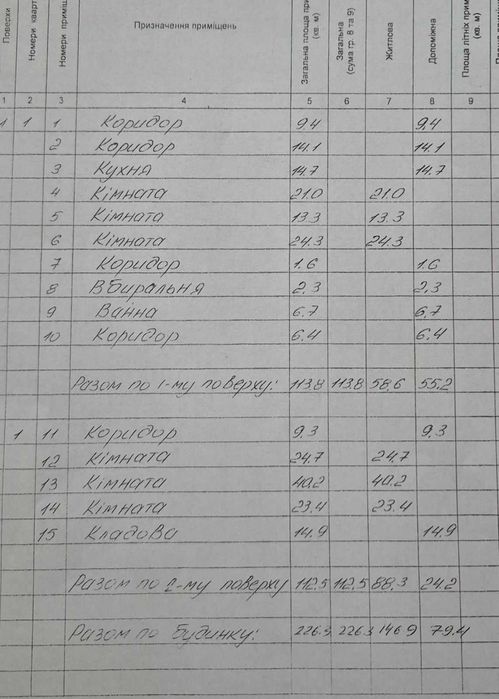 Поверхи
Номери кварт
Номери приміщ
Призначення приміщень
Загальна площа при
(кв. м)
Загальна
(сума гр. 8 та 9)
Житлова
Допоміжна
Площа літніх прим
(кв. м)
1 2 3 4 5 6 7 8 9
1 1 1 Коридор 9,4 9,4
2 Коридор 14.1 14.1
3 Кухня 14.7 14.7
4 Кімната 21.0 21.0
5 Кімната 13.3 13.3
6 Кімната 24.3 24.3
7 Коридор 1.6 1.6
8 Вбиральня 2,3 2,3
9 Ванна 6,7 6,7
10 Коридор 6,4 6,4
Разом по 1-му поверху: 113.8 113.8 58,6 55,2
1 11 Коридор 9,3 9,3
12 Кімната 24,7 24,7
13 Кімната 40,2 40,2
14 Кімната 23.4 23.4
15 Кладова 14,9 14,9
Разом по 2-му поверху 112,5 112,5 88,3 24,2
Разом по будинку: 226.3 226.3 146 9 79.4